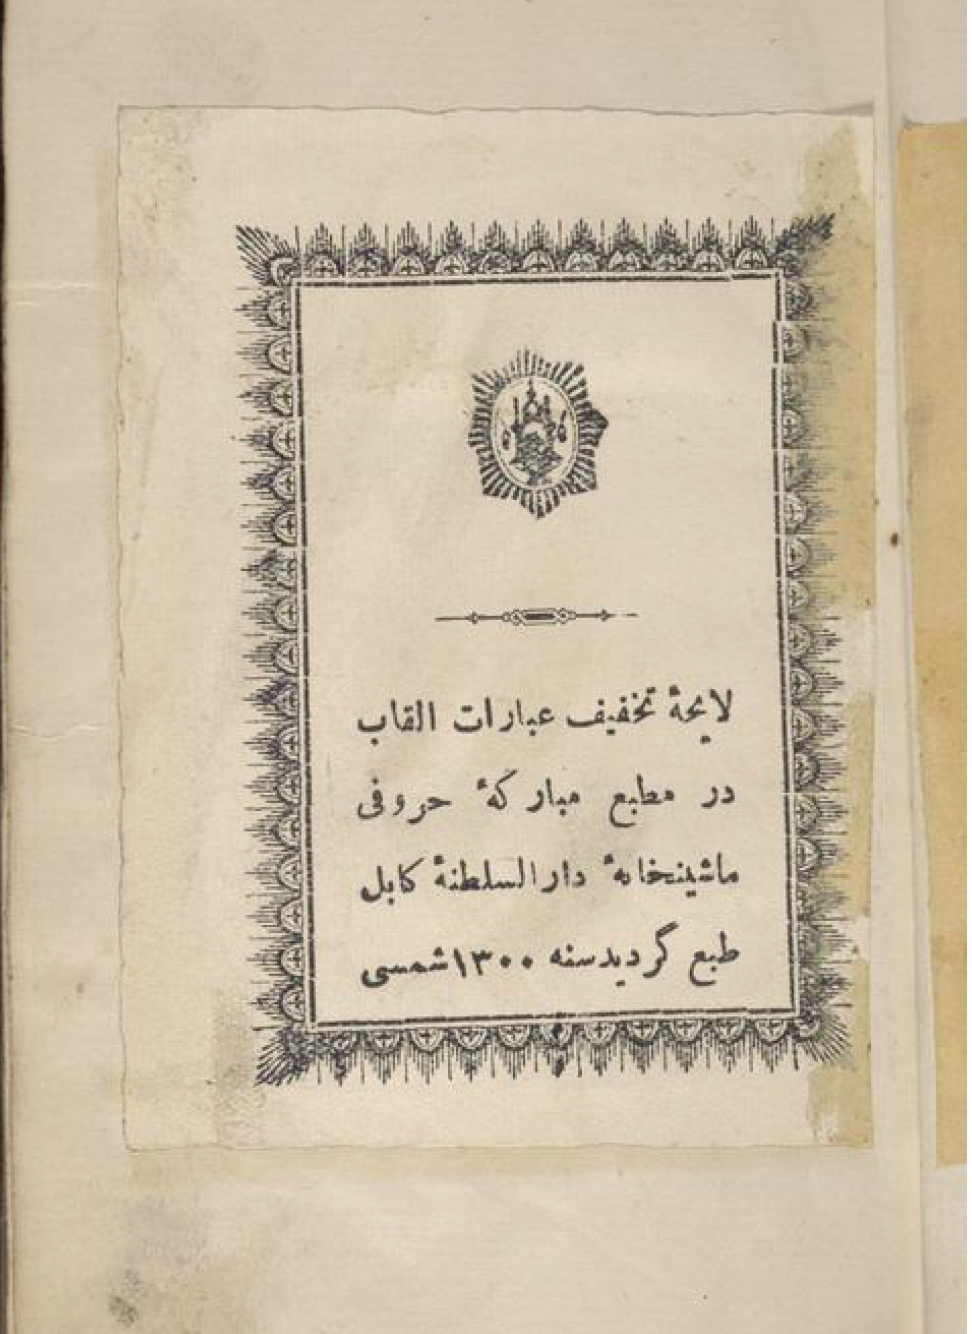 لایحهٔ تخفیف عبارات القاب
در مطبع مبارکهٔ حروفی
ماشینخانهٔ دارالسلطنهٔ کابل
طبع گردید سنه ۱۳۰۰ شمسی